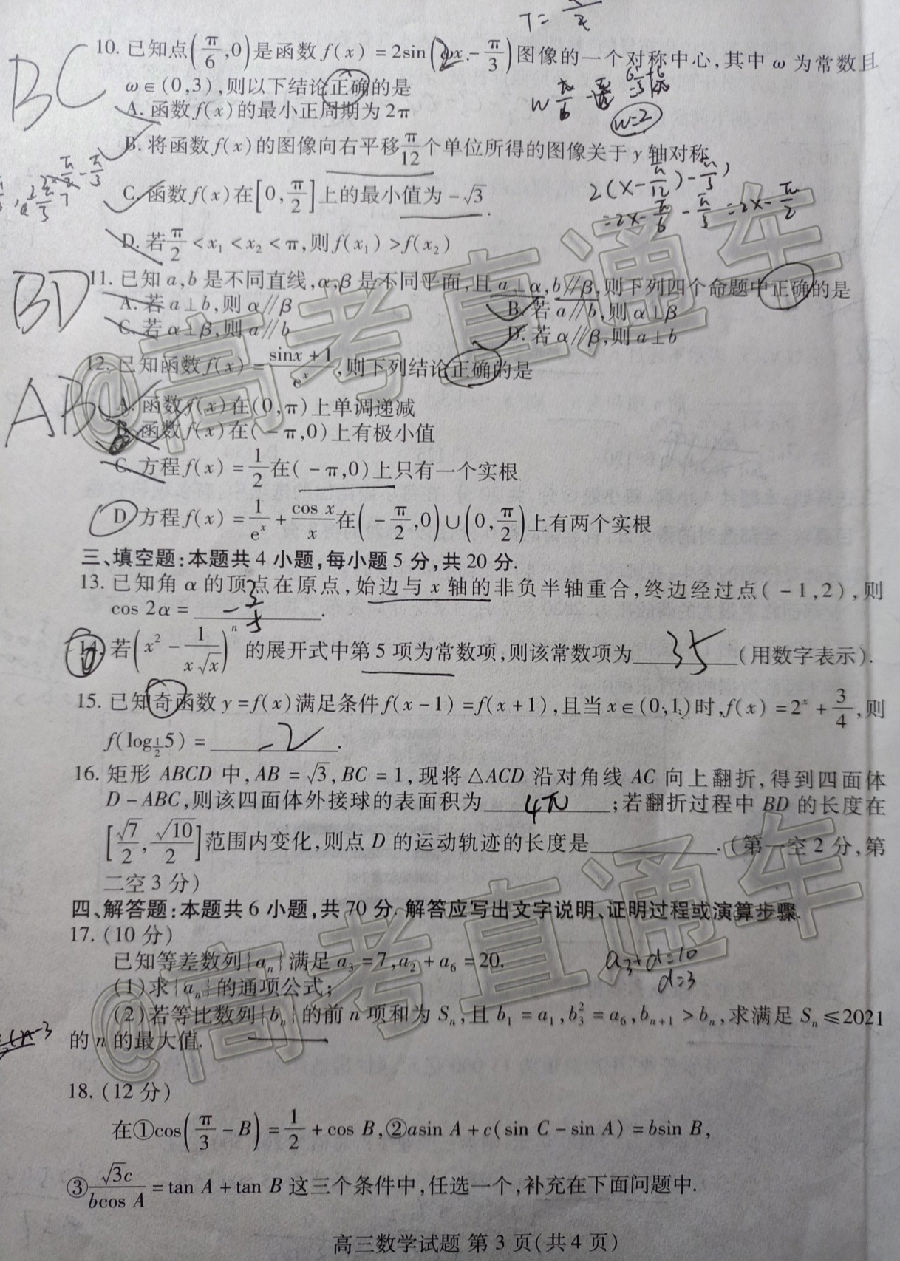 T=
10. 已知点(π/6,0)是函数 f(x)=2sin(ωx-π/3)图像的一个对称中心,其中 ω 为常数且
ω∈(0,3),则以下结论正确的是
BC
A. 函数 f(x)的最小正周期为 2π
w=2
B. 将函数 f(x)的图像向右平移π/12个单位所得的图像关于 y 轴对称
2(x-π/12)-π/3
=2x-π/6-π/3=2x-π/2
C. 函数 f(x)在[0,π/2]上的最小值为-√3
D. 若π/2<x₁<x₂<π,则 f(x₁)>f(x₂)
BD
11. 已知 a,b 是不同直线,α,β 是不同平面,且 a⊥α,b∥β,则下列四个命题中正确的是
A. 若 a⊥b,则 α∥β B. 若 a∥b,则 α⊥β
C. 若 α⊥β,则 a∥b D. 若 α∥β,则 a⊥b
12. 已知函数 f(x)=(sinx+1)/eˣ,则下列结论正确的是
AB
A. 函数 f(x)在(0,π)上单调递减
B. 函数 f(x)在(-π,0)上有极小值
C. 方程 f(x)=1/2在(-π,0)上只有一个实根
D. 方程 f(x)=1/eˣ+cos x/x在(-π/2,0)∪(0,π/2)上有两个实根
三、填空题:本题共 4 小题,每小题 5 分,共 20 分.
13. 已知角 α 的顶点在原点,始边与 x 轴的非负半轴重合,终边经过点(-1,2),则
cos 2α= -3/5 .
14. 若(x²-1/(x√x))ⁿ的展开式中第 5 项为常数项,则该常数项为 35 (用数字表示).
15. 已知奇函数 y=f(x)满足条件 f(x-1)=f(x+1),且当 x∈(0,1)时,f(x)=2ˣ+3/4,则
f(log_{1/2}5)= -2 .
16. 矩形 ABCD 中,AB=√3,BC=1,现将△ACD 沿对角线 AC 向上翻折,得到四面体
D-ABC,则该四面体外接球的表面积为 4π ;若翻折过程中 BD 的长度在
[√7/2,√10/2]范围内变化,则点 D 的运动轨迹的长度是______.(第一空 2 分,第
二空 3 分)
四、解答题:本题共 6 小题,共 70 分. 解答应写出文字说明、证明过程或演算步骤.
17. (10 分)
已知等差数列{aₙ}满足 a₃=7,a₂+a₆=20.
a₃+d=10
d=3
(1)求{aₙ}的通项公式;
(2)若等比数列{bₙ}的前 n 项和为 Sₙ,且 b₁=a₁,b₃²=a₆,bₙ₊₁>bₙ,求满足 Sₙ≤2021
的 n 的最大值.
18. (12 分)
在①cos(π/3-B)=1/2+cos B,②asin A+c(sin C-sin A)=bsin B,
③√3c/(bcos A)=tan A+tan B 这三个条件中,任选一个,补充在下面问题中.
高三数学试题 第 3 页(共 4 页)
@高考直通车
@高考直通车